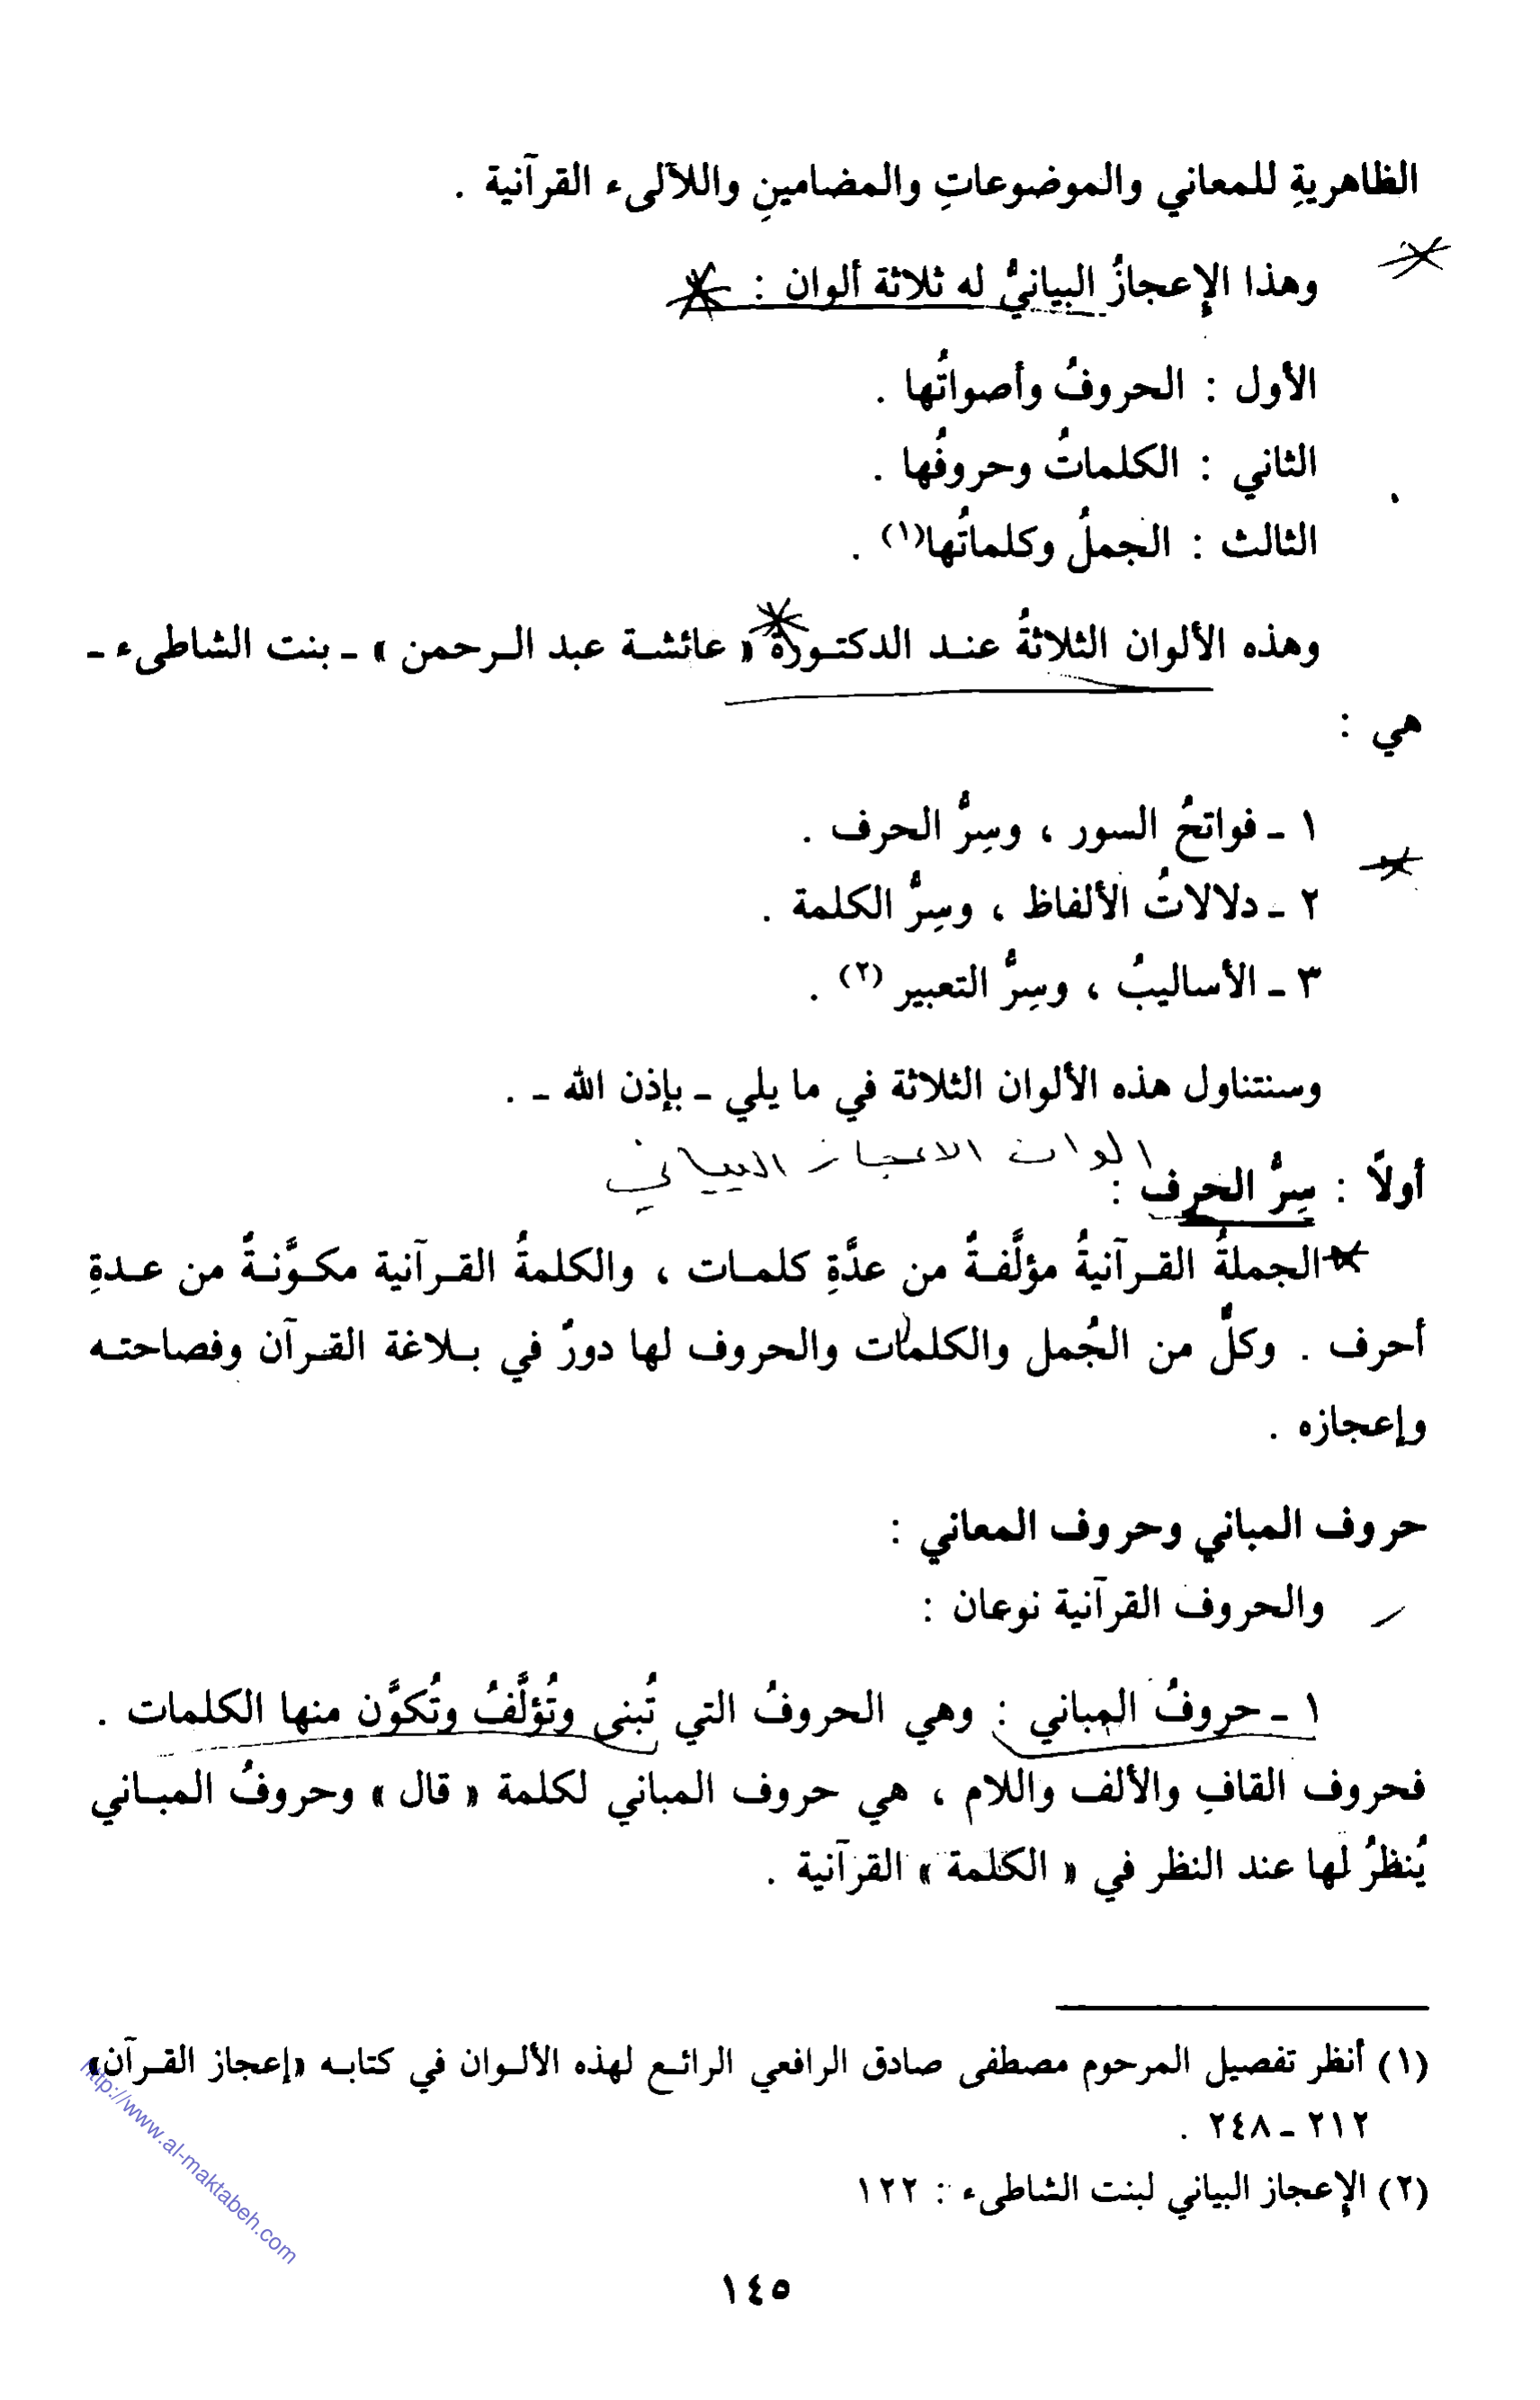 الظاهريةِ للمعاني والموضوعاتِ والمضامينِ واللآلىء القرآنية .
وهذا الإعجازُ البيانيُّ له ثلاثة ألوان :
الأول : الحروفُ وأصواتُها .
الثاني : الكلماتُ وحروفُها .
الثالث : الجملُ وكلماتُها(١) .
وهذه الألوان الثلاثةُ عنـد الدكتـورة « عائشـة عبد الـرحمن » ـ بنت الشاطىء ـ
هي :
١ ـ فواتحُ السور ، وسِرُّ الحرف .
٢ ـ دلالاتُ الألفاظ ، وسِرُّ الكلمة .
٣ ـ الأساليبُ ، وسِرُّ التعبير (٢) .
وسنتناول هذه الألوان الثلاثة في ما يلي ـ بإذن الله ـ .
الوان الاعجاز البياني
أولاً : سِرُّ الحرف :
الجملةُ القـرآنيةُ مؤلَّفـةٌ من عدَّةِ كلمـات ، والكلمةُ القـرآنية مكـوَّنـةٌ من عـدةِ
أحرف . وكلٌّ من الجُمل والكلمات والحروف لها دورٌ في بـلاغة القـرآن وفصاحتـه
وإعجازه .
حروف المباني وحروف المعاني :
والحروف القرآنية نوعان :
١ ـ حروفُ المباني : وهي الحروفُ التي تُبنى وتُؤلَّفُ وتُكوَّن منها الكلمات .
فحروف القافِ والألف واللام ، هي حروف المباني لكلمة « قال » وحروفُ المبـاني
يُنظرُ لها عند النظر في « الكلمة » القرآنية .
(١) أنظر تفصيل المرحوم مصطفى صادق الرافعي الرائـع لهذه الألـوان في كتابـه «إعجاز القـرآن»
٢١٢ ـ ٢٤٨ .
(٢) الإعجاز البياني لبنت الشاطىء : ١٢٢
http://www.al-maktabeh.com
١٤٥